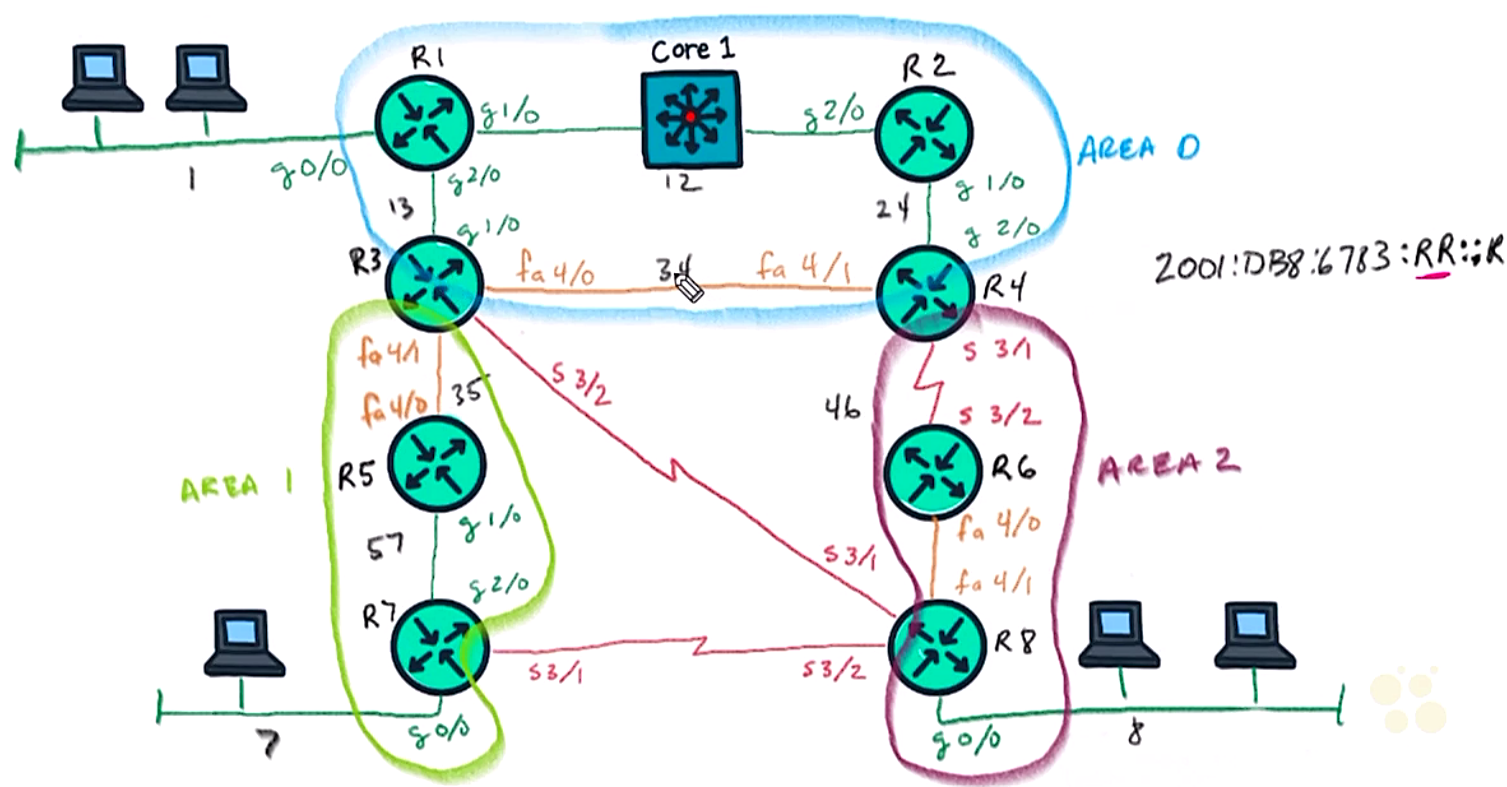 R1
Core 1
R2
g1/0
g2/0
AREA 0
g0/0
1
12
g2/0
g 1/0
13
24
g1/0
g 2/0
R3
fa 4/0
34
fa 4/1
R4
2001:DB8:6783:RR::R
fa 4/1
S 3/1
S 3/2
fa 4/0
35
46
S 3/2
AREA 1
R5
R6
AREA 2
g 1/0
fa 4/0
57
S3/1
fa 4/1
g2/0
R7
R8
S3/1
S3/2
7
g0/0
g0/0
8